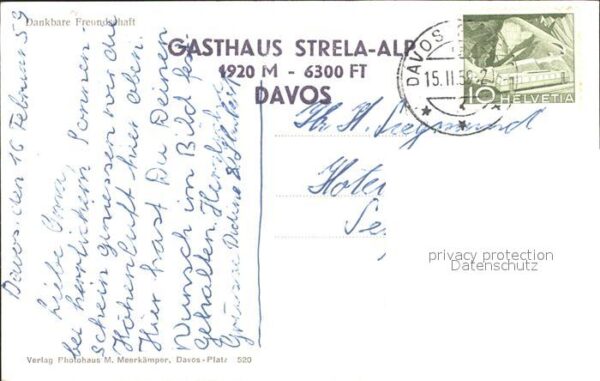 Dankbare Freundschaft
GASTHAUS STRELA-ALP
1920 M - 6300 FT
DAVOS
DAVOS
15.II.59
10 HELVETIA
Davos, den 16 Februar 59
Liebe Oma,
bei herrlichem Sonnen-
schein geniessen wir die
Höhenluft hier oben.
Hier hast Du Deinen
Wunsch im Bild fest
gehalten. Herzliche
Grüsse
H. Siegmund
privacy protection
Datenschutz
Verlag Photohaus M. Meerkämper, Davos-Platz 520